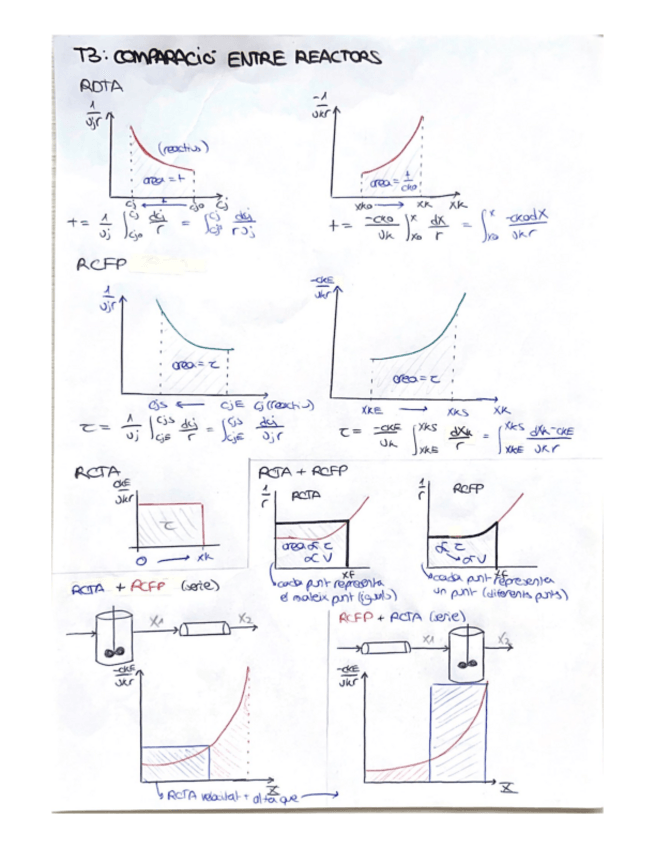 T3: COMPARACIÓ ENTRE REACTORS
RDTA
1/νjr
(reactiu)
area = t
cj ← t cj0 cj
t = 1/νj ∫cj0^cj dcj/r = ∫cj0^cj dcj/rνj
-1/νkr
area = t/ck0
xk0 → xk xk
t = -ck0/νk ∫x0^x dx/r = ∫x0^x -ck0dx/νkr
RCFP
1/νjr
area = τ
cjs ← cjE cj (reactiu)
τ = 1/νj ∫cjE^cjs dcj/r = ∫cjE^cjs dcj/νjr
-ckE/νkr
area = τ
xkE → xks xk
τ = -ckE/νk ∫xkE^xks dxk/r = ∫xkE^xks dxk-ckE/νkr
RCTA
ckE/νkr
τ
0 → xk
RCTA + RCFP
1/r
RCTA
area α τ
α V
xf
cada punt representa
el mateix punt (iguals)
1/r
RCFP
α τ
→ α V
xf
cada punt representa
un punt (diferents punts)
RCTA + RCFP (sèrie)
x1
x2
-ckE/νkr
x
RCFP + RCTA (sèrie)
x1
x2
-ckE/νkr
x
RCTA velocitat + alta que